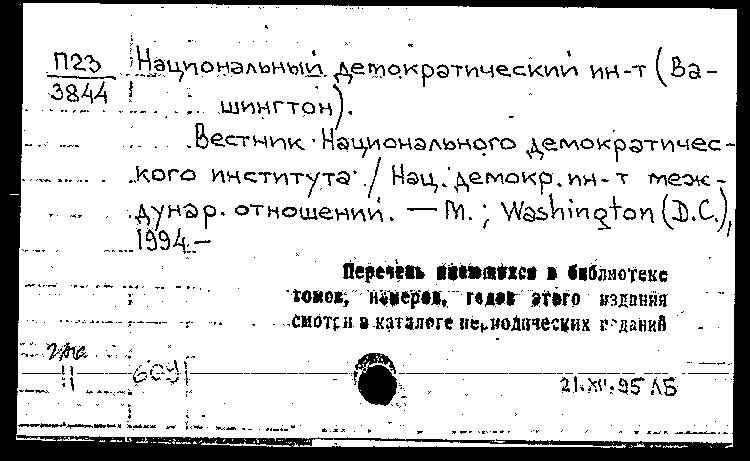 П23
3844
Национальный демократический ин-т (Ва-
шингтон).
Вестник Национального демократичес-
кого института / Нац. демокр. ин-т меж-
дунар. отношений. — М.; Washington (D.C.),
1994.—
Перечень имеющихся в библиотеке
томов, номеров, годов этого издания
смотри в каталоге периодических изданий
11
609
21.XII.95 ЛБ